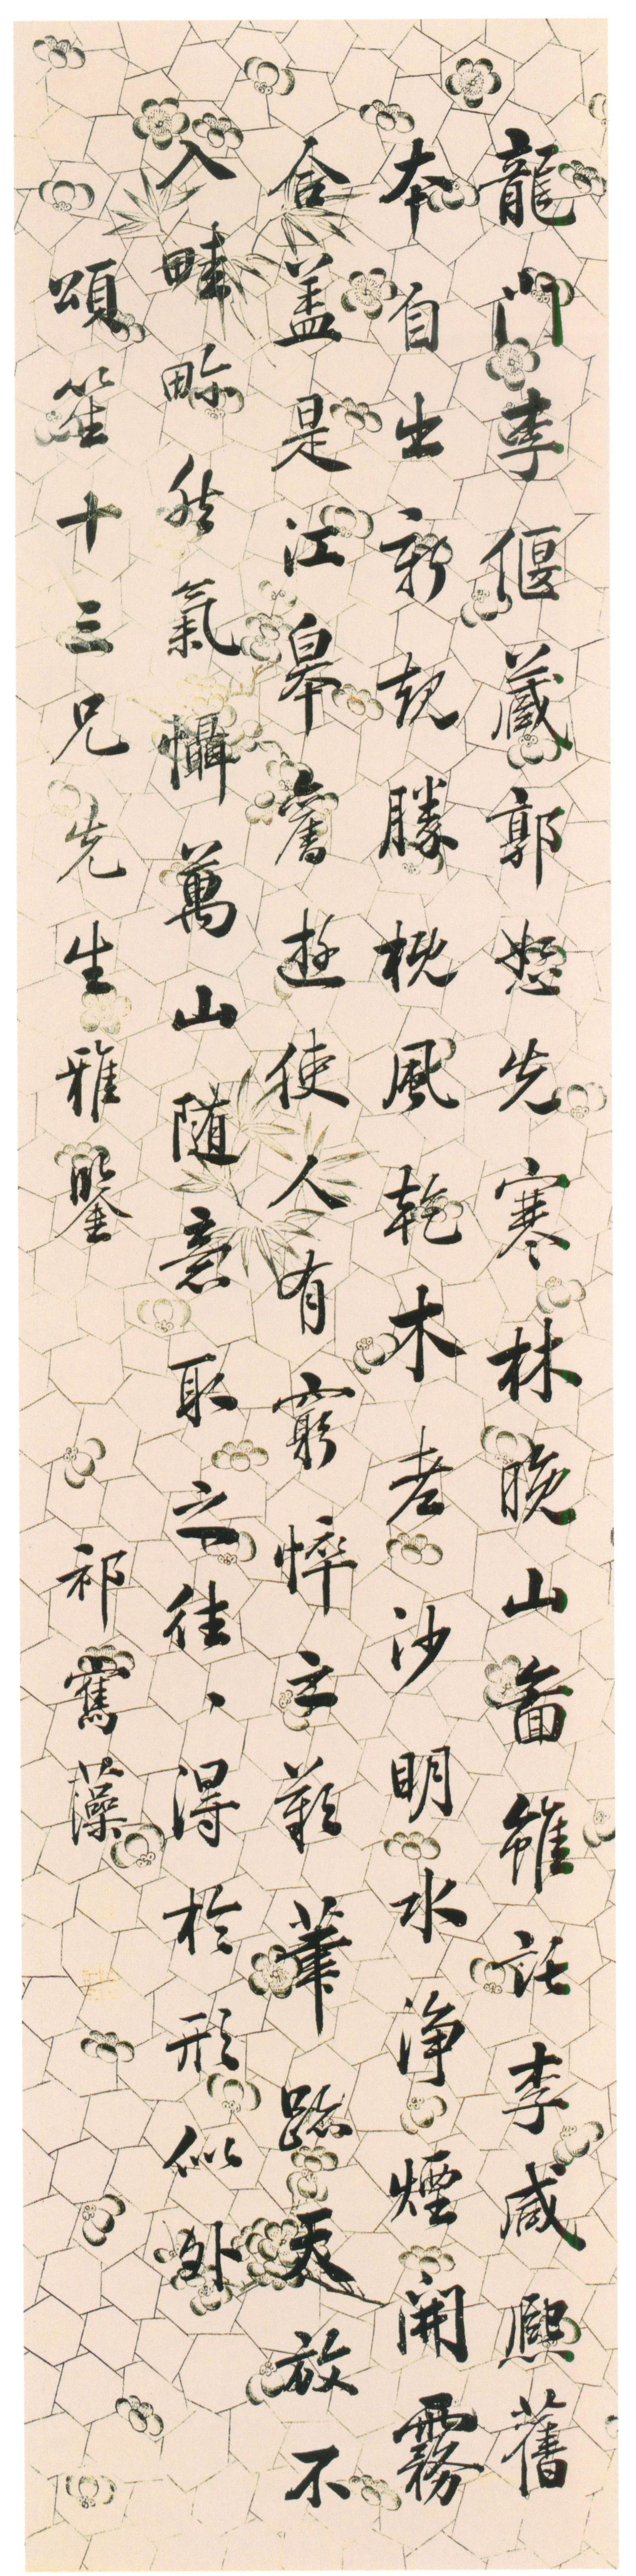 龍門李偃藏郭恕先寒林晚山畵雖託李咸熙舊
本自出新規勝概風乾木老沙明水淨煙開霧
合蓋是江皋舊遊使人有窮悴之歎筆跡天放不
入畦畛然氣懾萬山随意取之往、得於形似外
頌笙十三兄先生雅鑒 祁寯藻